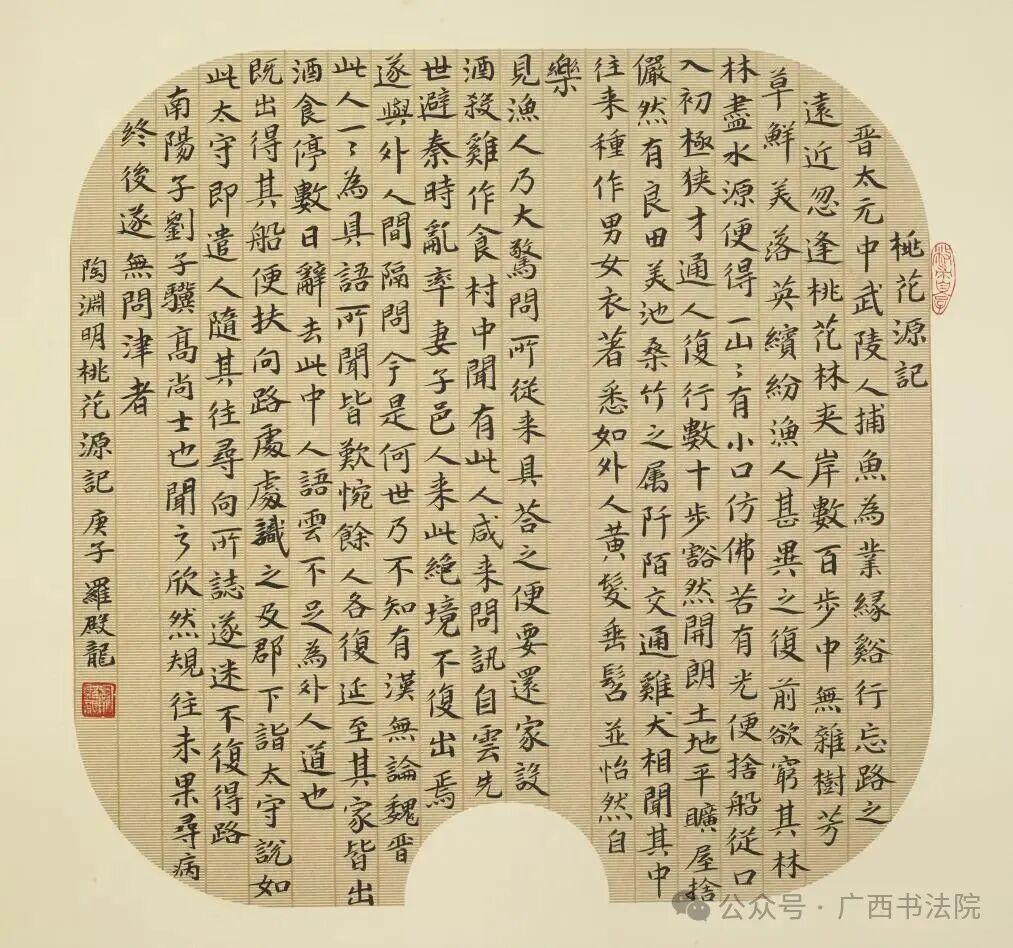 桃花源記
晋太元中武陵人捕魚為業縁谿行忘路之
遠近忽逢桃花林夹岸數百步中無雜樹芳
草鮮美落英繽紛漁人甚異之復前欲窮其林
林盡水源便得一山〻有小口仿佛若有光便捨船従口
入初極狹才通人復行數十步豁然開朗土地平曠屋捨
儼然有良田美池桑竹之属阡陌交通雞犬相聞其中
往来種作男女衣著悉如外人黄髮垂髫並怡然自
樂
見漁人乃大驚問所従来具荅之便要還家設
酒殺雞作食村中聞有此人咸来問訊自雲先
世避秦時亂率妻子邑人来此絶境不復出焉
遂與外人間隔問今是何世乃不知有漢無論魏晋
此人一〻為具語所聞皆歎惋餘人各復延至其家皆出
酒食停數日辭去此中人語雲不足為外人道也
既出得其船便扶向路處處識之及郡下詣太守說如
此太守即遣人隨其往尋向所誌遂迷不復得路
南陽子劉子驥高尚士也聞之欣然規往未果尋病
終後遂無問津者
陶淵明桃花源記 庚子 羅殿龍
公众号·广西书法院